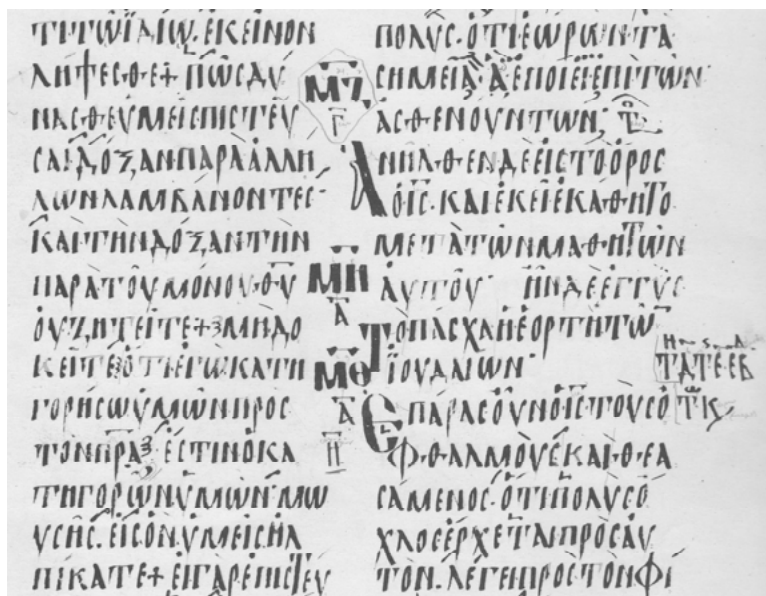 ΤΙ ΤΩ ΙΔΙΩ· ΕΚΕΙΝΟΝ
ΛΗΨΕΣΘΕ + ΠΩΣ ΔΥ
ΝΑΣΘΕ ΥΜΕΙΣ ΠΙΣΤΕΥ
ΣΑΙ ΔΟΞΑΝ ΠΑΡΑ ΑΛΛΗ
ΛΩΝ ΛΑΜΒΑΝΟΝΤΕΣ·
ΚΑΙ ΤΗΝ ΔΟΞΑΝ ΤΗΝ
ΠΑΡΑ ΤΟΥ ΜΟΝΟΥ ΘΥ
ΟΥ ΖΗΤΕΙΤΕ + ΜΗ ΔΟ
ΚΕΙΤΕ ΟΤΙ ΕΓΩ ΚΑΤΗ
ΓΟΡΗΣΩ ΥΜΩΝ ΠΡΟΣ
ΤΟΝ ΠΡΑ ΕΣΤΙΝ Ο ΚΑ
ΤΗΓΟΡΩΝ ΥΜΩΝ ΜΩ
ΥΣΗΣ· ΕΙΣ ΟΝ ΥΜΕΙΣ ΗΛ
ΠΙΚΑΤΕ + ΕΙ ΓΑΡ ΕΠΙΣΤΕΥ
ΜΖ
Γ
ΜΗ
Α
ΜΘ
Α
Η
ΠΟΛΥΣ· ΟΤΙ ΕΩΡΩΝ ΤΑ
ΣΗΜΕΙΑ Α ΕΠΟΙΕΙ ΕΠΙ ΤΩΝ
ΑΣΘΕΝΟΥΝΤΩΝ
ΑΝΗΛΘΕΝ ΔΕ ΕΙΣ ΤΟ ΟΡΟΣ
Ο ΙΣ· ΚΑΙ ΕΚΕΙ ΕΚΑΘΗΤΟ
ΜΕΤΑ ΤΩΝ ΜΑΘΗΤΩΝ
ΑΥΤΟΥ· ΗΝ ΔΕ ΕΓΓΥΣ
ΤΟ ΠΑΣΧΑ Η ΕΟΡΤΗ ΤΩ
ΙΟΥΔΑΙΩΝ
ΕΠΑΡΑΣ ΟΥΝ Ο ΙΣ ΤΟΥΣ Ο
ΦΘΑΛΜΟΥΣ ΚΑΙ ΘΕΑ
ΣΑΜΕΝΟΣ· ΟΤΙ ΠΟΛΥΣ Ο
ΧΛΟΣ ΕΡΧΕΤΑΙ ΠΡΟΣ ΑΥ
ΤΟΝ· ΛΕΓΕΙ ΠΡΟΣ ΤΟΝ ΦΙ